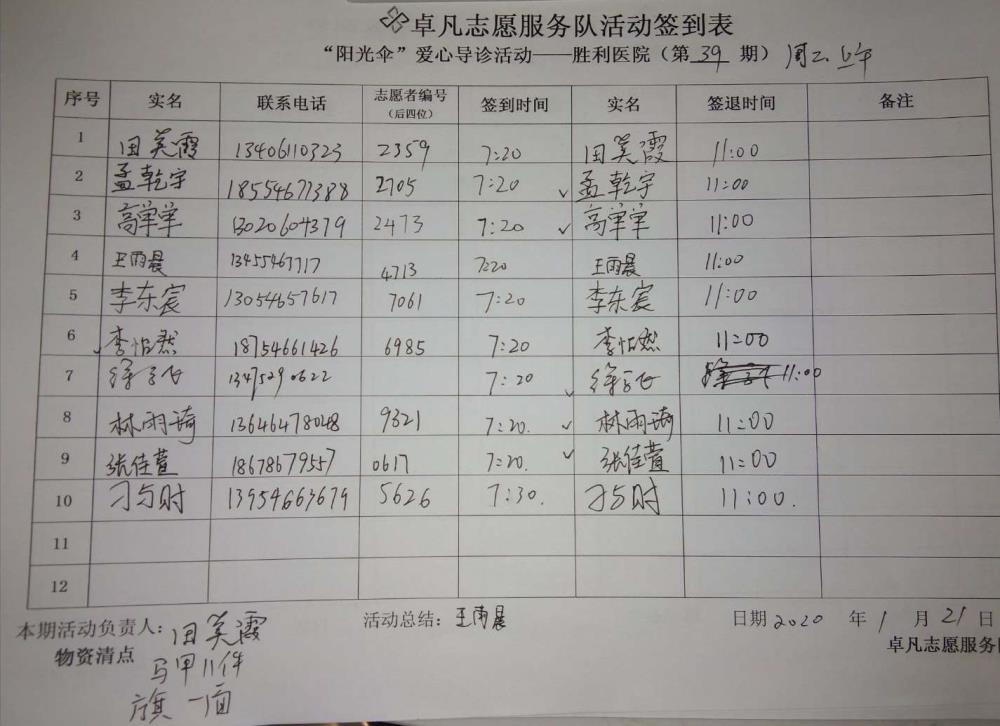 卓凡志愿服务队活动签到表
“阳光伞”爱心导诊活动——胜利医院（第 39 期）周二上午
序号 实名 联系电话 志愿者编号（后四位） 签到时间 实名 签退时间 备注
1 田美霞 13406110323 2359 7:20 田美霞 11:00
2 孟乾宇 18554671388 2705 7:20 ✓ 孟乾宇 11:00
3 高学学 13020604379 2473 7:20 ✓ 高学学 11:00
4 王雨晨 13455467717 4713 7:20 王雨晨 11:00
5 李东宸 13054657617 7061 7:20 李东宸 11:00
6 ✓ 李怡然 18754661426 6985 7:20 李怡然 11:00
7 徐 13475290622 7:20 ✓ 徐 11:00
8 林雨琦 13646478048 9321 7:20. ✓ 林雨琦 11:00
9 张佳萱 18678679557 0617 7:20. ✓ 张佳萱 11:00
10 刁与时 13954663679 5626 7:30. 刁与时 11:00.
11
12
本期活动负责人：田美霞 活动总结：王雨晨 日期 2020 年 1 月 21 日
物资清点 卓凡志愿服务
马甲11件
旗一面